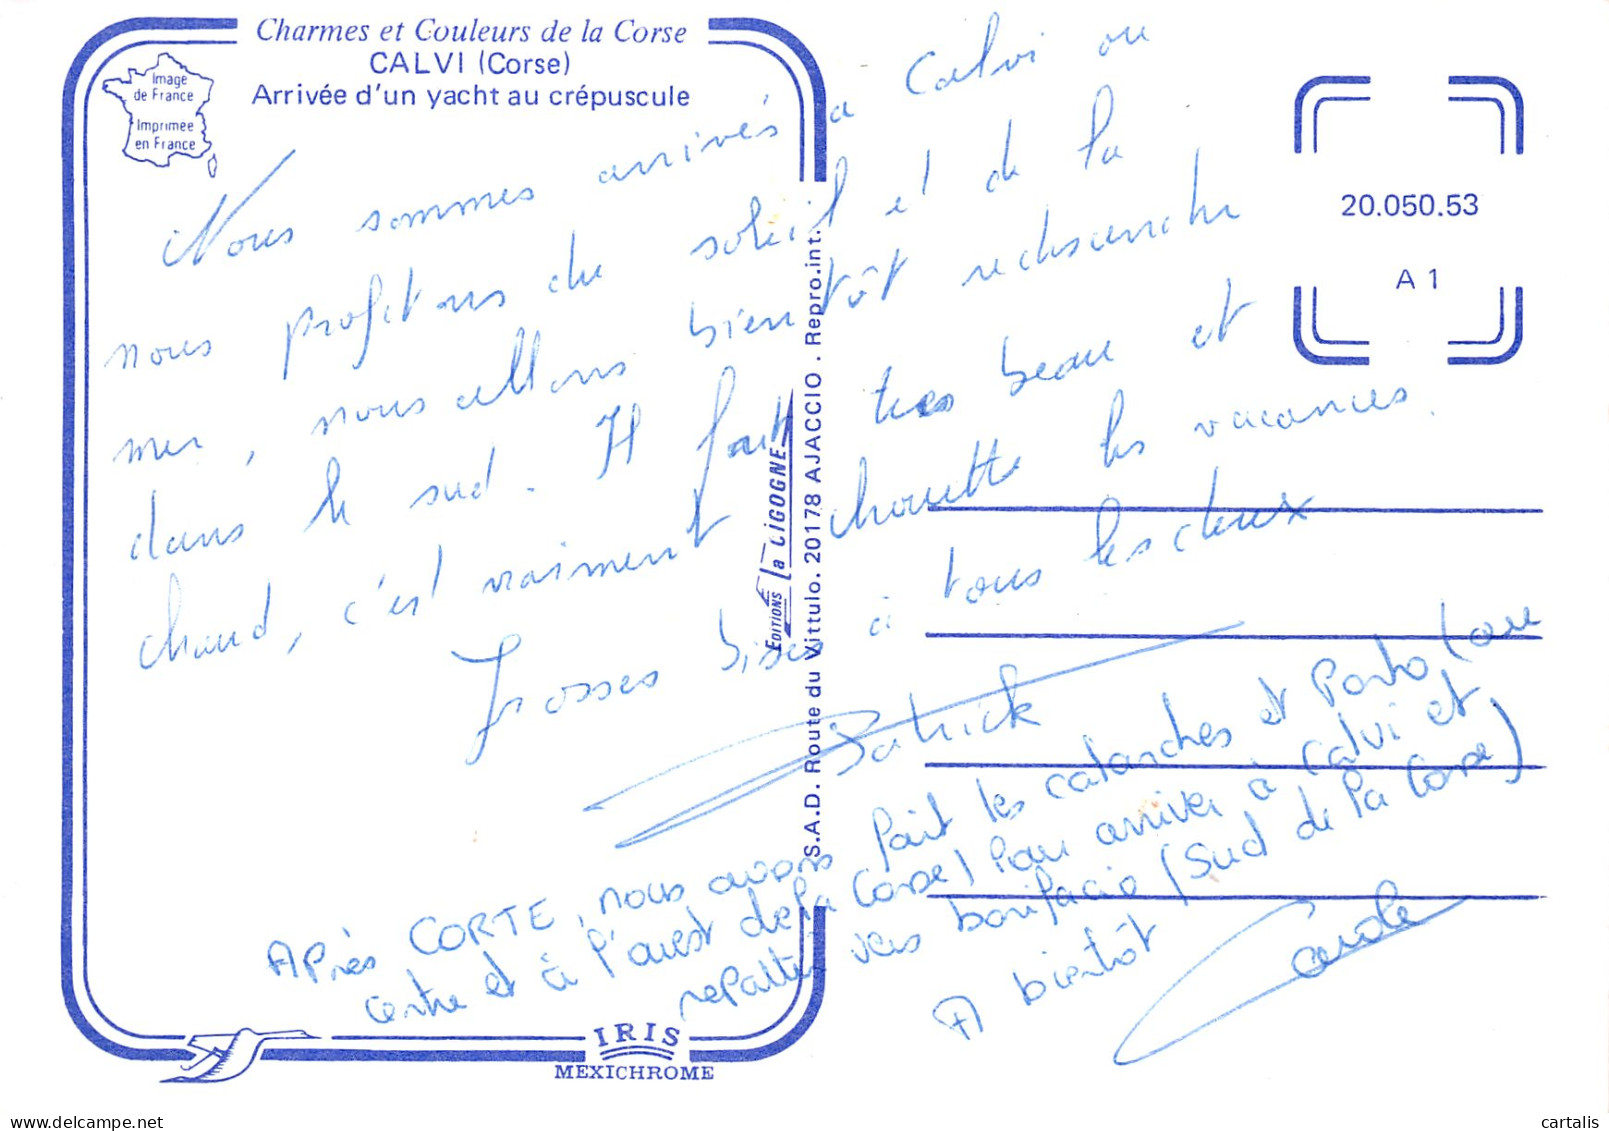 Charmes et Couleurs de la Corse
CALVI (Corse)
Arrivée d'un yacht au crépuscule
Image
de France
Imprimée
en France
20.050.53
A 1
Nous sommes arrivés a Calvi ou
nous profitons du soleil et de la
mer, nous allons bientôt redescendre
dans le sud. Il fait tres beau et
chaud, c'est vraiment chouette les vacances.
Grosses bises à tous les deux
Patrick
Après CORTE, nous avons fait les calanches et Porto, (au
centre et à l'ouest de la Corse) pour arriver à Calvi et
repartir vers bonifacio (sud de la Corse)
A bientôt
Carole
EDITIONS La CIGOGNE
S.A.D. Route du Vittulo. 20178 AJACCIO . Repro.int.
IRIS
MEXICHROME
delcampe.net
cartalis